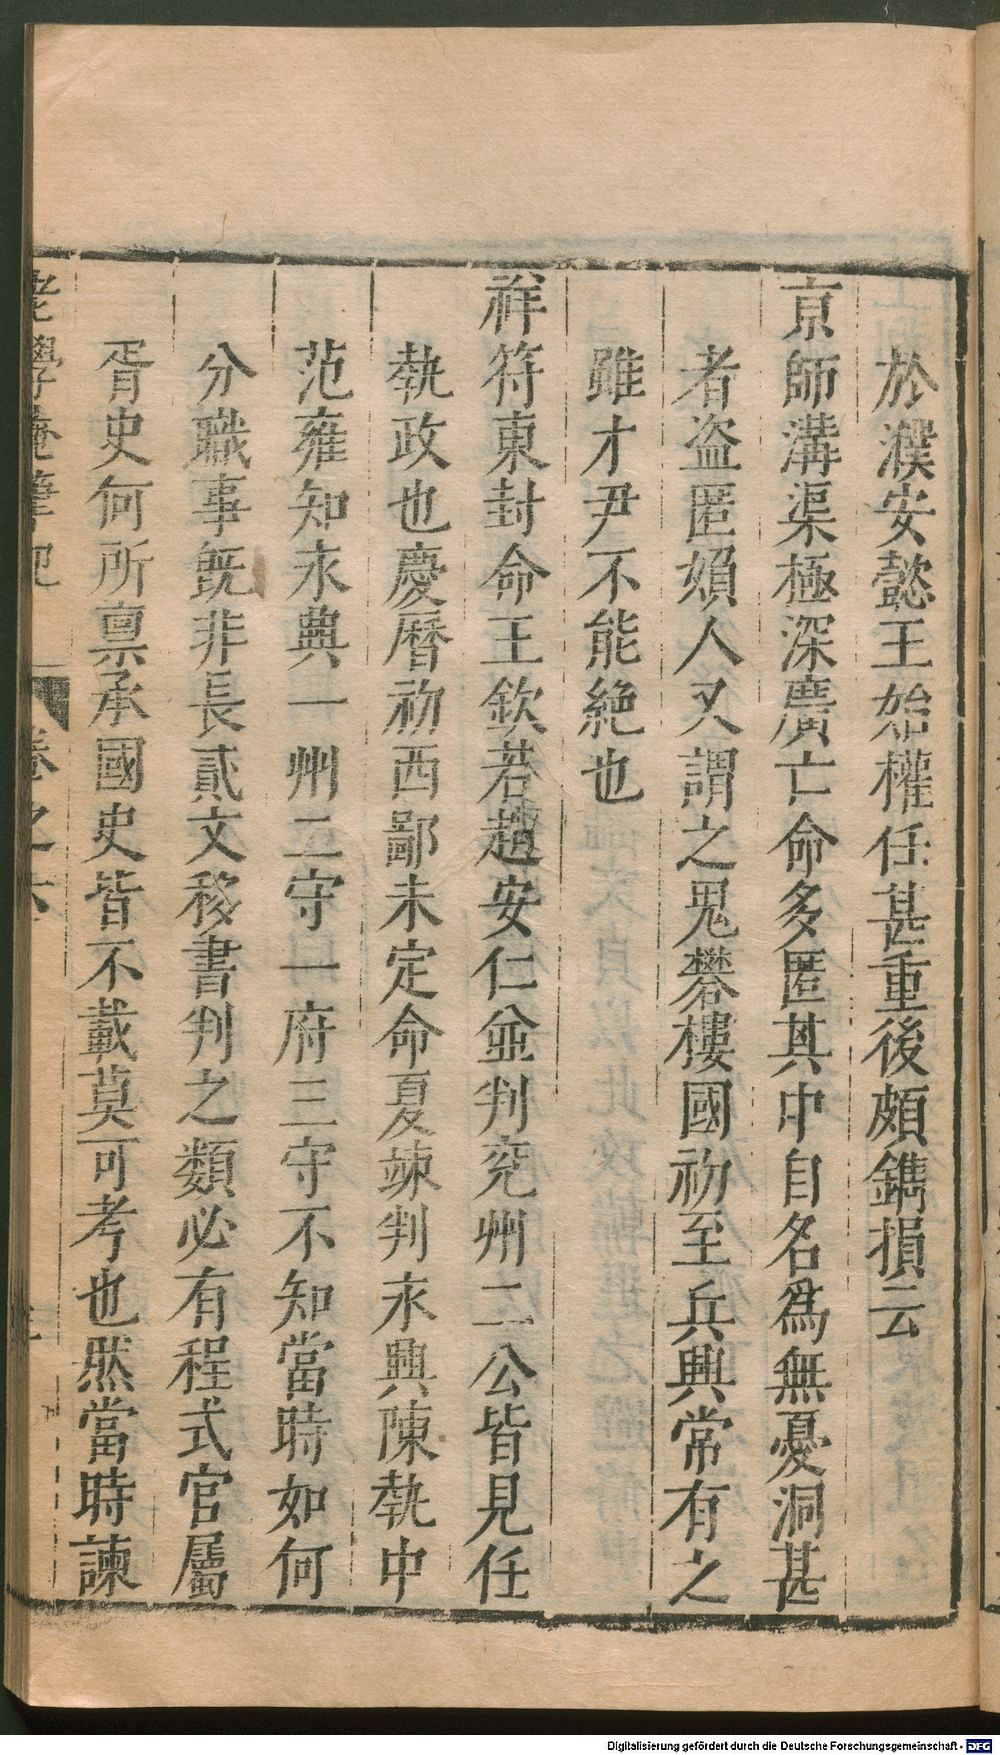 於濮安懿王始權任甚重後頗鐫損云
京師溝渠極深廣亡命多匿其中自名爲無憂洞甚
者盜匿婦人又謂之鬼礬樓國初至兵興常有之
雖才尹不能絶也
祥符東封命王欽若趙安仁並判兗州二公皆見任
執政也慶曆初西鄙未定命夏竦判永興陳執中
范雍知永興一州二守一府三守不知當時如何
分職事既非長貳文移書判之類必有程式官屬
胥史何所稟承國史皆不載莫可考也然當時諫
老學庵筆記 卷之六
Digitalisierung gefördert durch die Deutsche Forschungsgemeinschaft - DFG